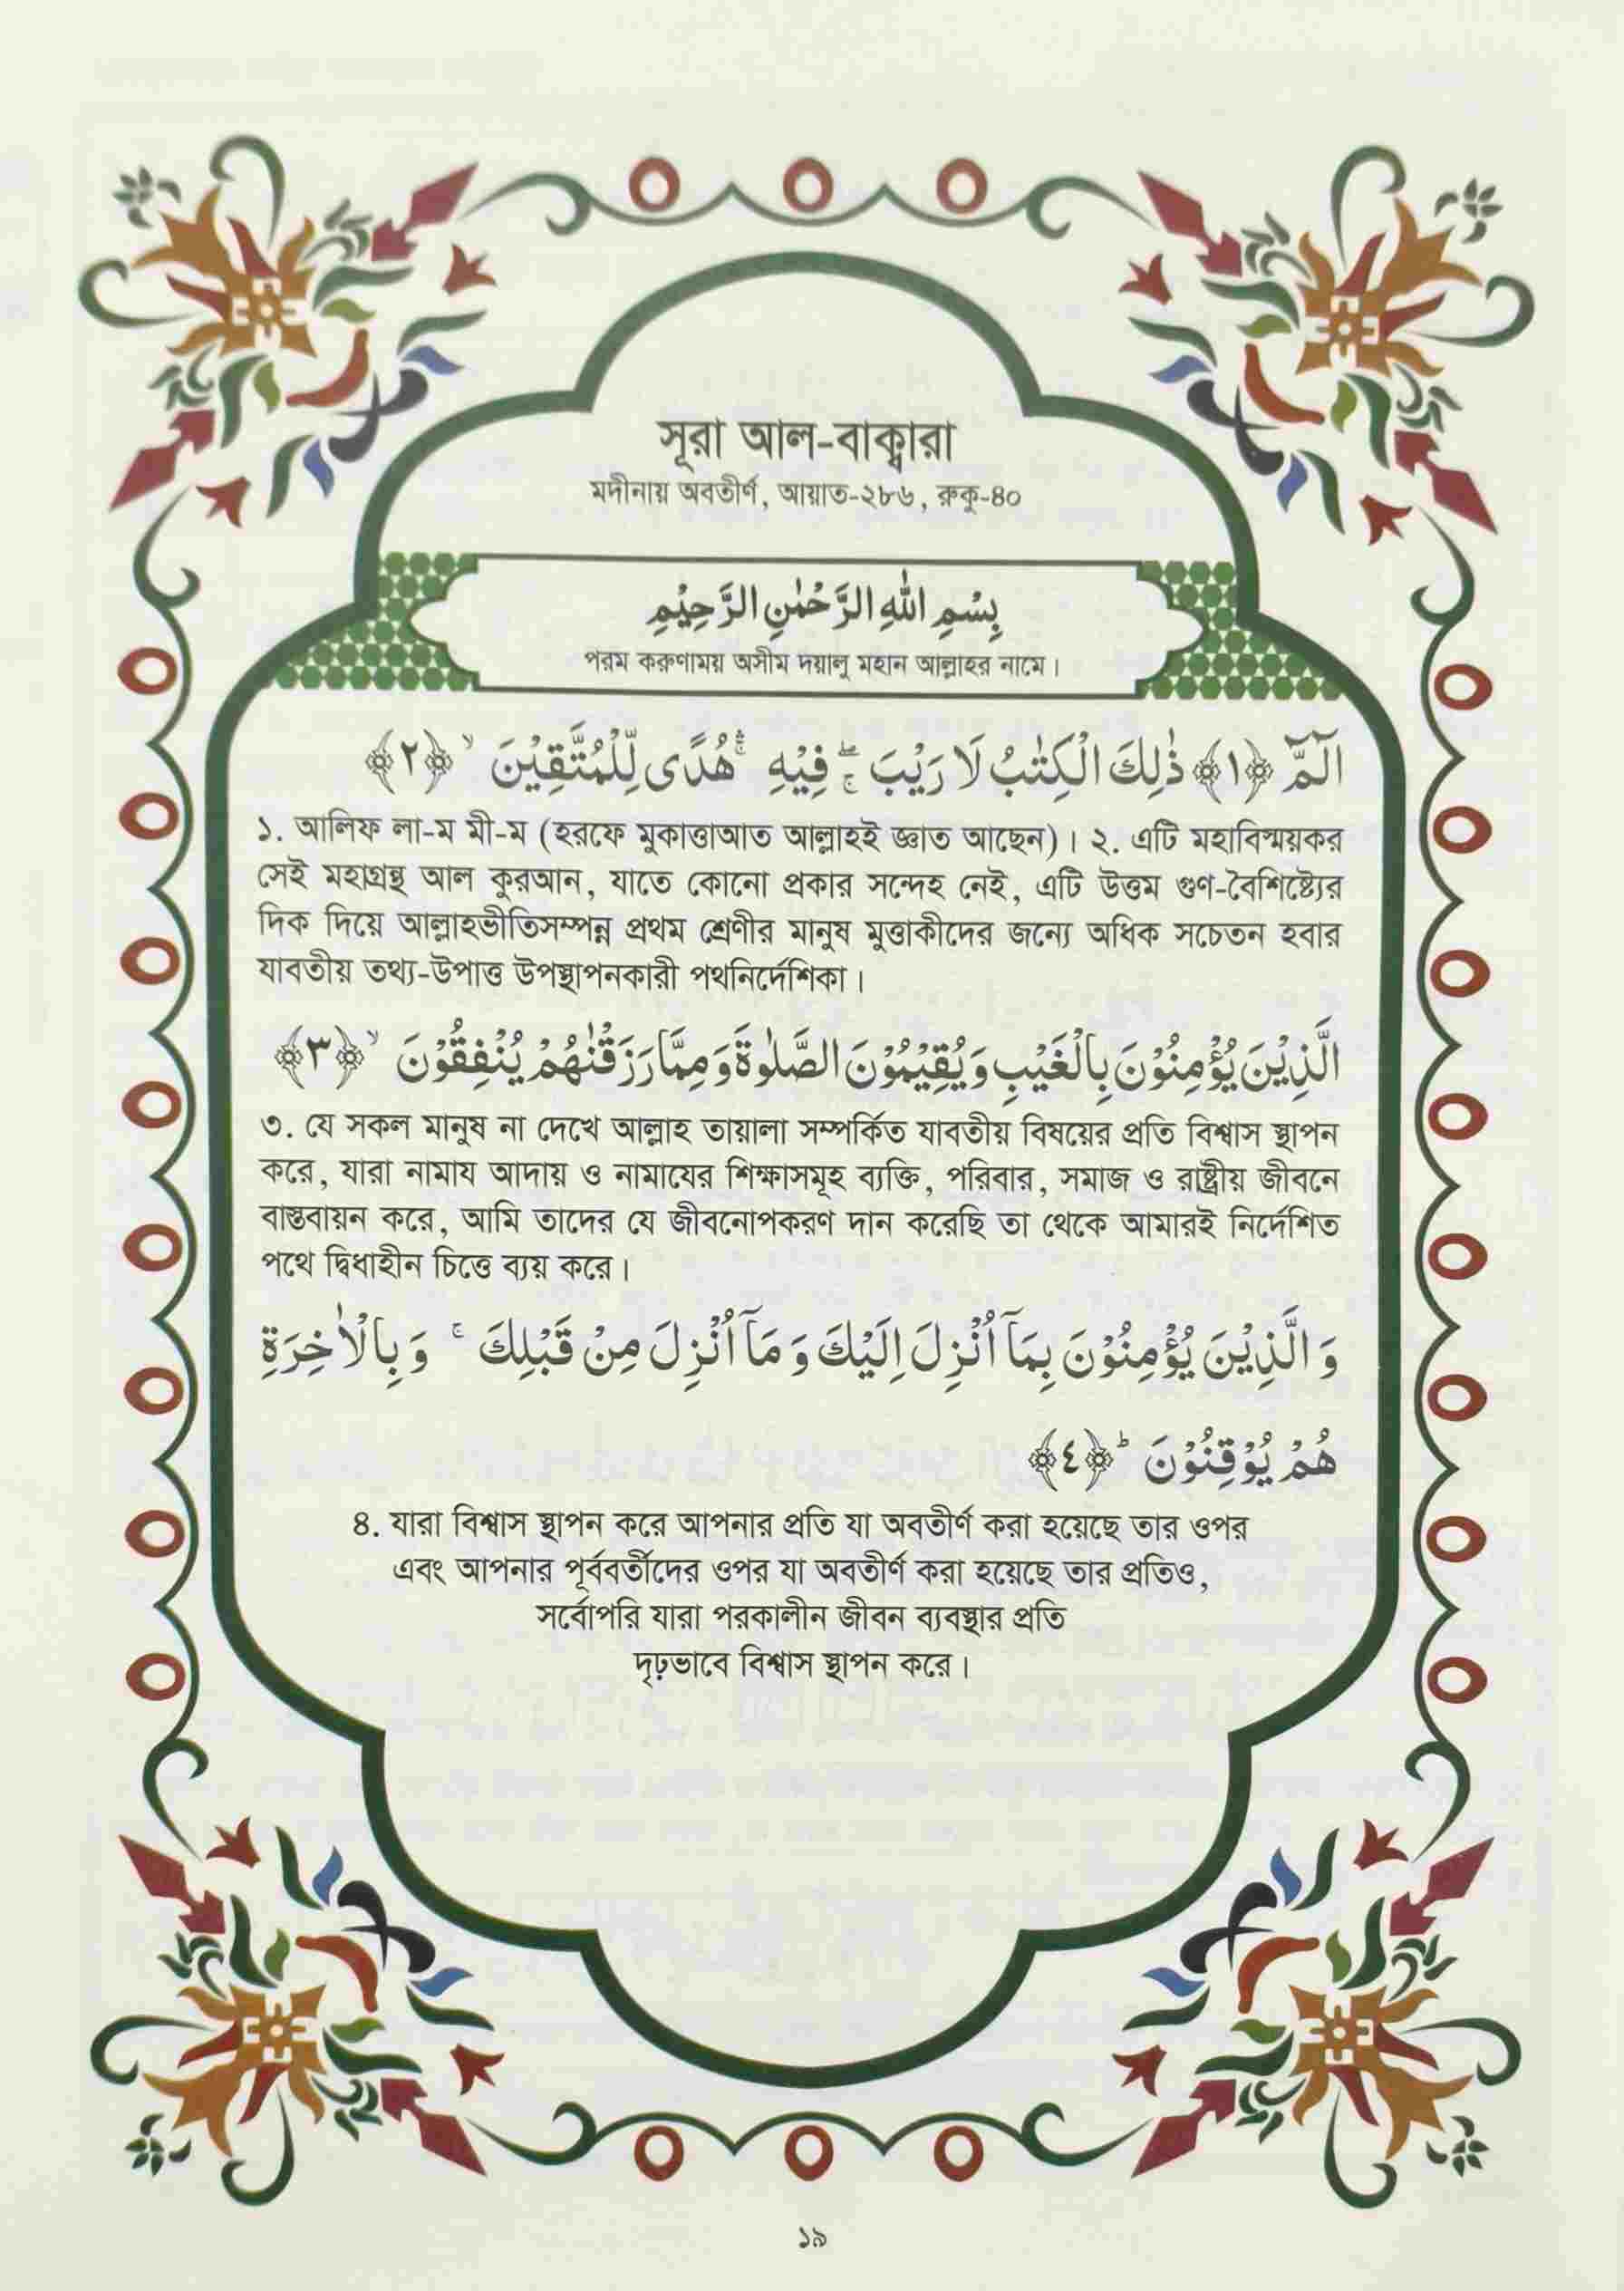 সূরা আল-বাক্বারা
মদীনায় অবতীর্ণ, আয়াত-২৮৬, রুকু-৪০
بِسْمِ اللّٰهِ الرَّحْمٰنِ الرَّحِيْمِ
পরম করুণাময় অসীম দয়ালু মহান আল্লাহর নামে।
الٓمّٓ ﴿١﴾ ذٰلِكَ الْكِتٰبُ لَا رَيْبَ ۛۖۚ فِيْهِ ۛۚ هُدًى لِّلْمُتَّقِيْنَ ۙ ﴿٢﴾
১. আলিফ লা-ম মী-ম (হরফে মুকাত্তাআত আল্লাহই জ্ঞাত আছেন)। ২. এটি মহাবিস্ময়কর
সেই মহাগ্রন্থ আল কুরআন, যাতে কোনো প্রকার সন্দেহ নেই, এটি উত্তম গুণ-বৈশিষ্ট্যের
দিক দিয়ে আল্লাহভীতিসম্পন্ন প্রথম শ্রেণীর মানুষ মুত্তাকীদের জন্যে অধিক সচেতন হবার
যাবতীয় তথ্য-উপাত্ত উপস্থাপনকারী পথনির্দেশিকা।
الَّذِيْنَ يُؤْمِنُوْنَ بِالْغَيْبِ وَيُقِيْمُوْنَ الصَّلٰوةَ وَمِمَّا رَزَقْنٰهُمْ يُنْفِقُوْنَ ۙ ﴿٣﴾
৩. যে সকল মানুষ না দেখে আল্লাহ তায়ালা সম্পর্কিত যাবতীয় বিষয়ের প্রতি বিশ্বাস স্থাপন
করে, যারা নামায আদায় ও নামাযের শিক্ষাসমূহ ব্যক্তি, পরিবার, সমাজ ও রাষ্ট্রীয় জীবনে
বাস্তবায়ন করে, আমি তাদের যে জীবনোপকরণ দান করেছি তা থেকে আমারই নির্দেশিত
পথে দ্বিধাহীন চিত্তে ব্যয় করে।
وَ الَّذِيْنَ يُؤْمِنُوْنَ بِمَاۤ اُنْزِلَ اِلَيْكَ وَ مَاۤ اُنْزِلَ مِنْ قَبْلِكَ ۚ وَ بِالْاٰخِرَةِ
هُمْ يُوْقِنُوْنَ ؕ ﴿٤﴾
৪. যারা বিশ্বাস স্থাপন করে আপনার প্রতি যা অবতীর্ণ করা হয়েছে তার ওপর
এবং আপনার পূর্ববর্তীদের ওপর যা অবতীর্ণ করা হয়েছে তার প্রতিও,
সর্বোপরি যারা পরকালীন জীবন ব্যবস্থার প্রতি
দৃঢ়ভাবে বিশ্বাস স্থাপন করে।
১৯